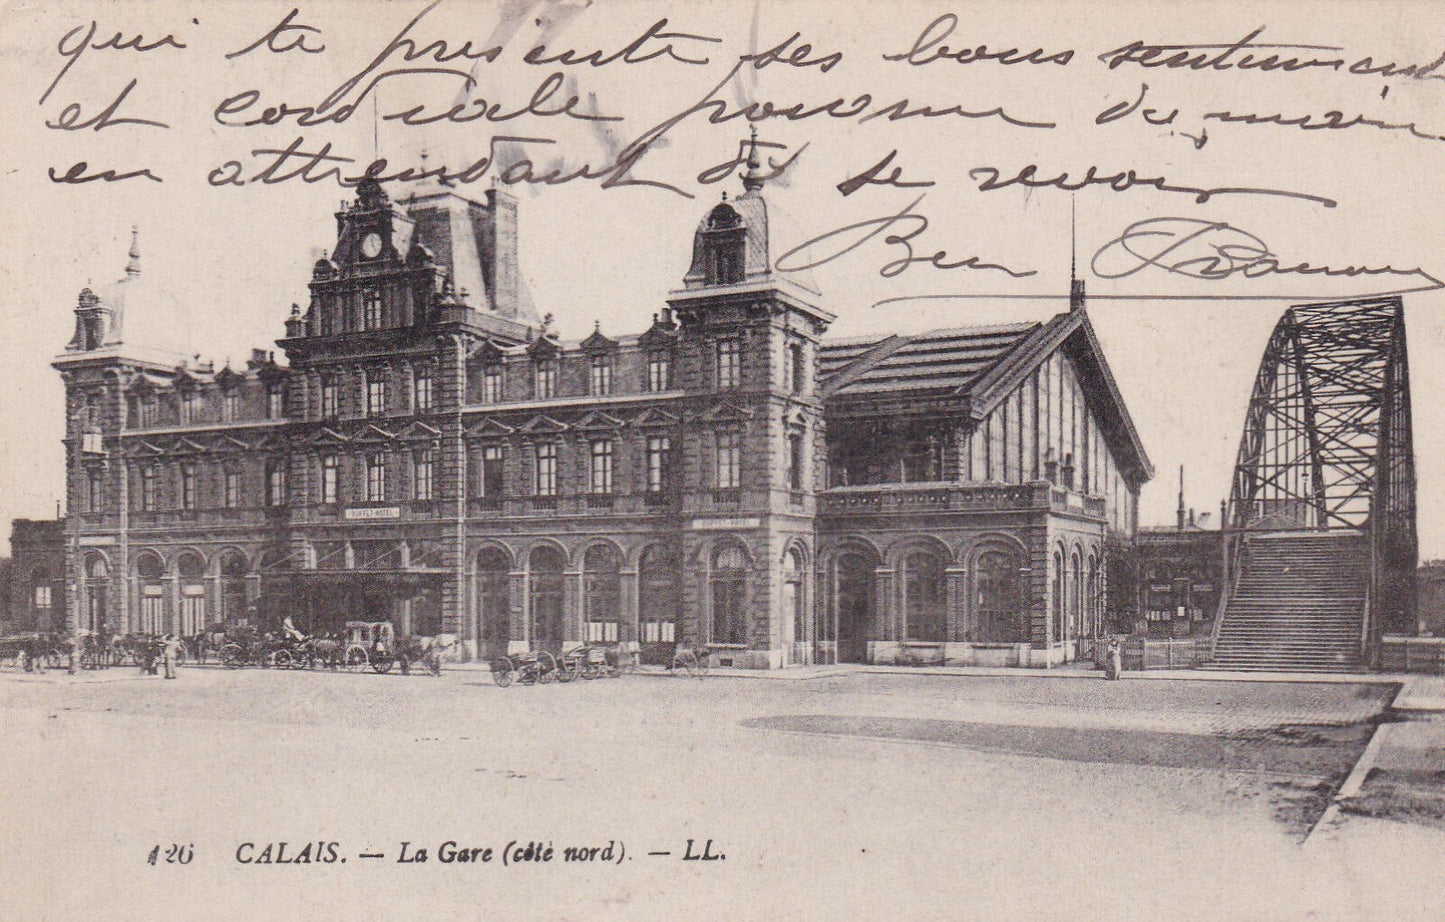 qui te présente ses bons sentiments
et cordiale poignée de main
en attendant de se revoir
Ben
BUFFET-HOTEL
126 CALAIS. — La Gare (côté nord). — LL.